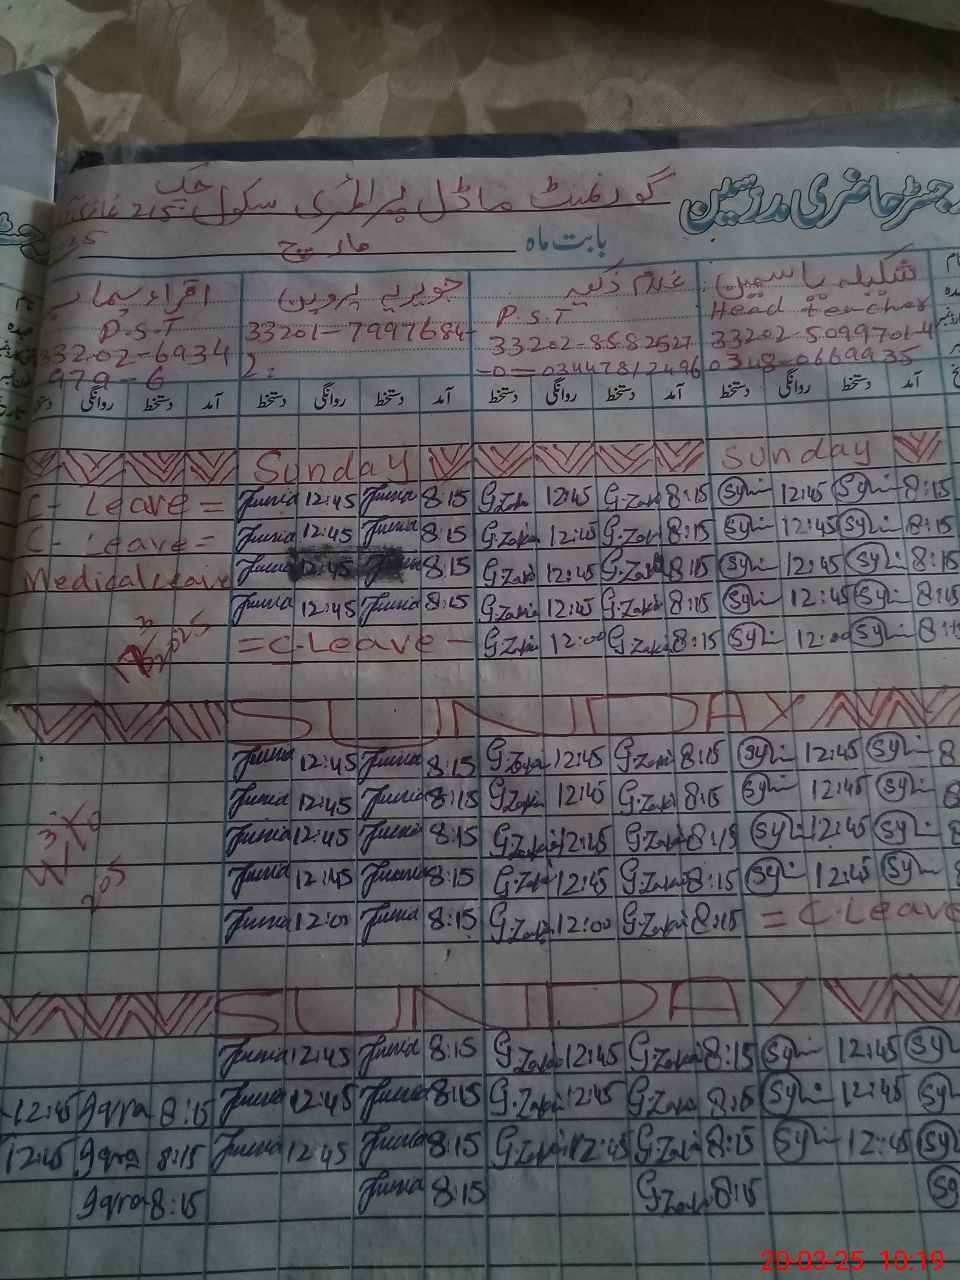 رجسٹر حاضری مدرسین گورنمنٹ ماڈل پرائمری سکول چک 215
بابت ماہ مارچ
شکیلہ یاسمین غلام ذکیہ جویریہ پروین اقراء
Head teacher P.S.T 33201-7997684- P.S.T
33202-5099701-4 33202-8582527 2: 33202-6934
0348-0669935 -0=03447812496 979-6
آمد دستخط روانگی دستخط آمد دستخط روانگی دستخط آمد دستخط روانگی دستخط آمد دستخط روانگی
Sunday Sunday
C- Leave = Juuria 12:45 Juuria 8:15 G.Zakia 12:45 G.Zakia 8:15 Syh 12:45 Syh 8:15
C- Leave = Juuria 12:45 Juuria 8:15 G.Zakia 12:45 G.Zakia 8:15 Syh 12:45 Syh 8:15
Medical Leave Juuria 12:45 Juuria 8:15 G.Zakia 12:45 G.Zakia 8:15 Syh 12:45 Syh 8:15
Juuria 12:45 Juuria 8:15 G.Zakia 12:45 G.Zakia 8:15 Syh 12:45 Syh 8:15
= C.Leave - G.Zakia 12:00 G.Zakia 8:15 Syh 12:00 Syh 8:15
SUNDAY
Juuria 12:45 Juuria 8:15 G.Zakia 12:45 G.Zakia 8:15 Syh 12:45 Syh 8
Juuria 12:45 Juuria 8:15 G.Zakia 12:45 G.Zakia 8:15 Syh 12:45 Syh 8
Juuria 12:45 Juuria 8:15 G.Zakia 12:45 G.Zakia 8:15 Syh 12:45 Syh 8
Juuria 12:45 Juuria 8:15 G.Zakia 12:45 G.Zakia 8:15 Syh 12:45 Syh 8
Juuria 12:00 Juuria 8:15 G.Zakia 12:00 G.Zakia 8:15 = C.Leave
SUNDAY
Juuria 12:45 Juuria 8:15 G.Zakia 12:45 G.Zakia 8:15 Syh 12:45 Syh
12:45 Iqra 8:15 Juuria 12:45 Juuria 8:15 G.Zakia 12:45 G.Zakia 8:15 Syh 12:45 Syh
12:45 Iqra 8:15 Juuria 12:45 Juuria 8:15 G.Zakia 12:45 G.Zakia 8:15 Syh 12:45 Syh
Iqra 8:15 Juuria 8:15 G.Zakia 8:15 Sy
20-03-25 10:19